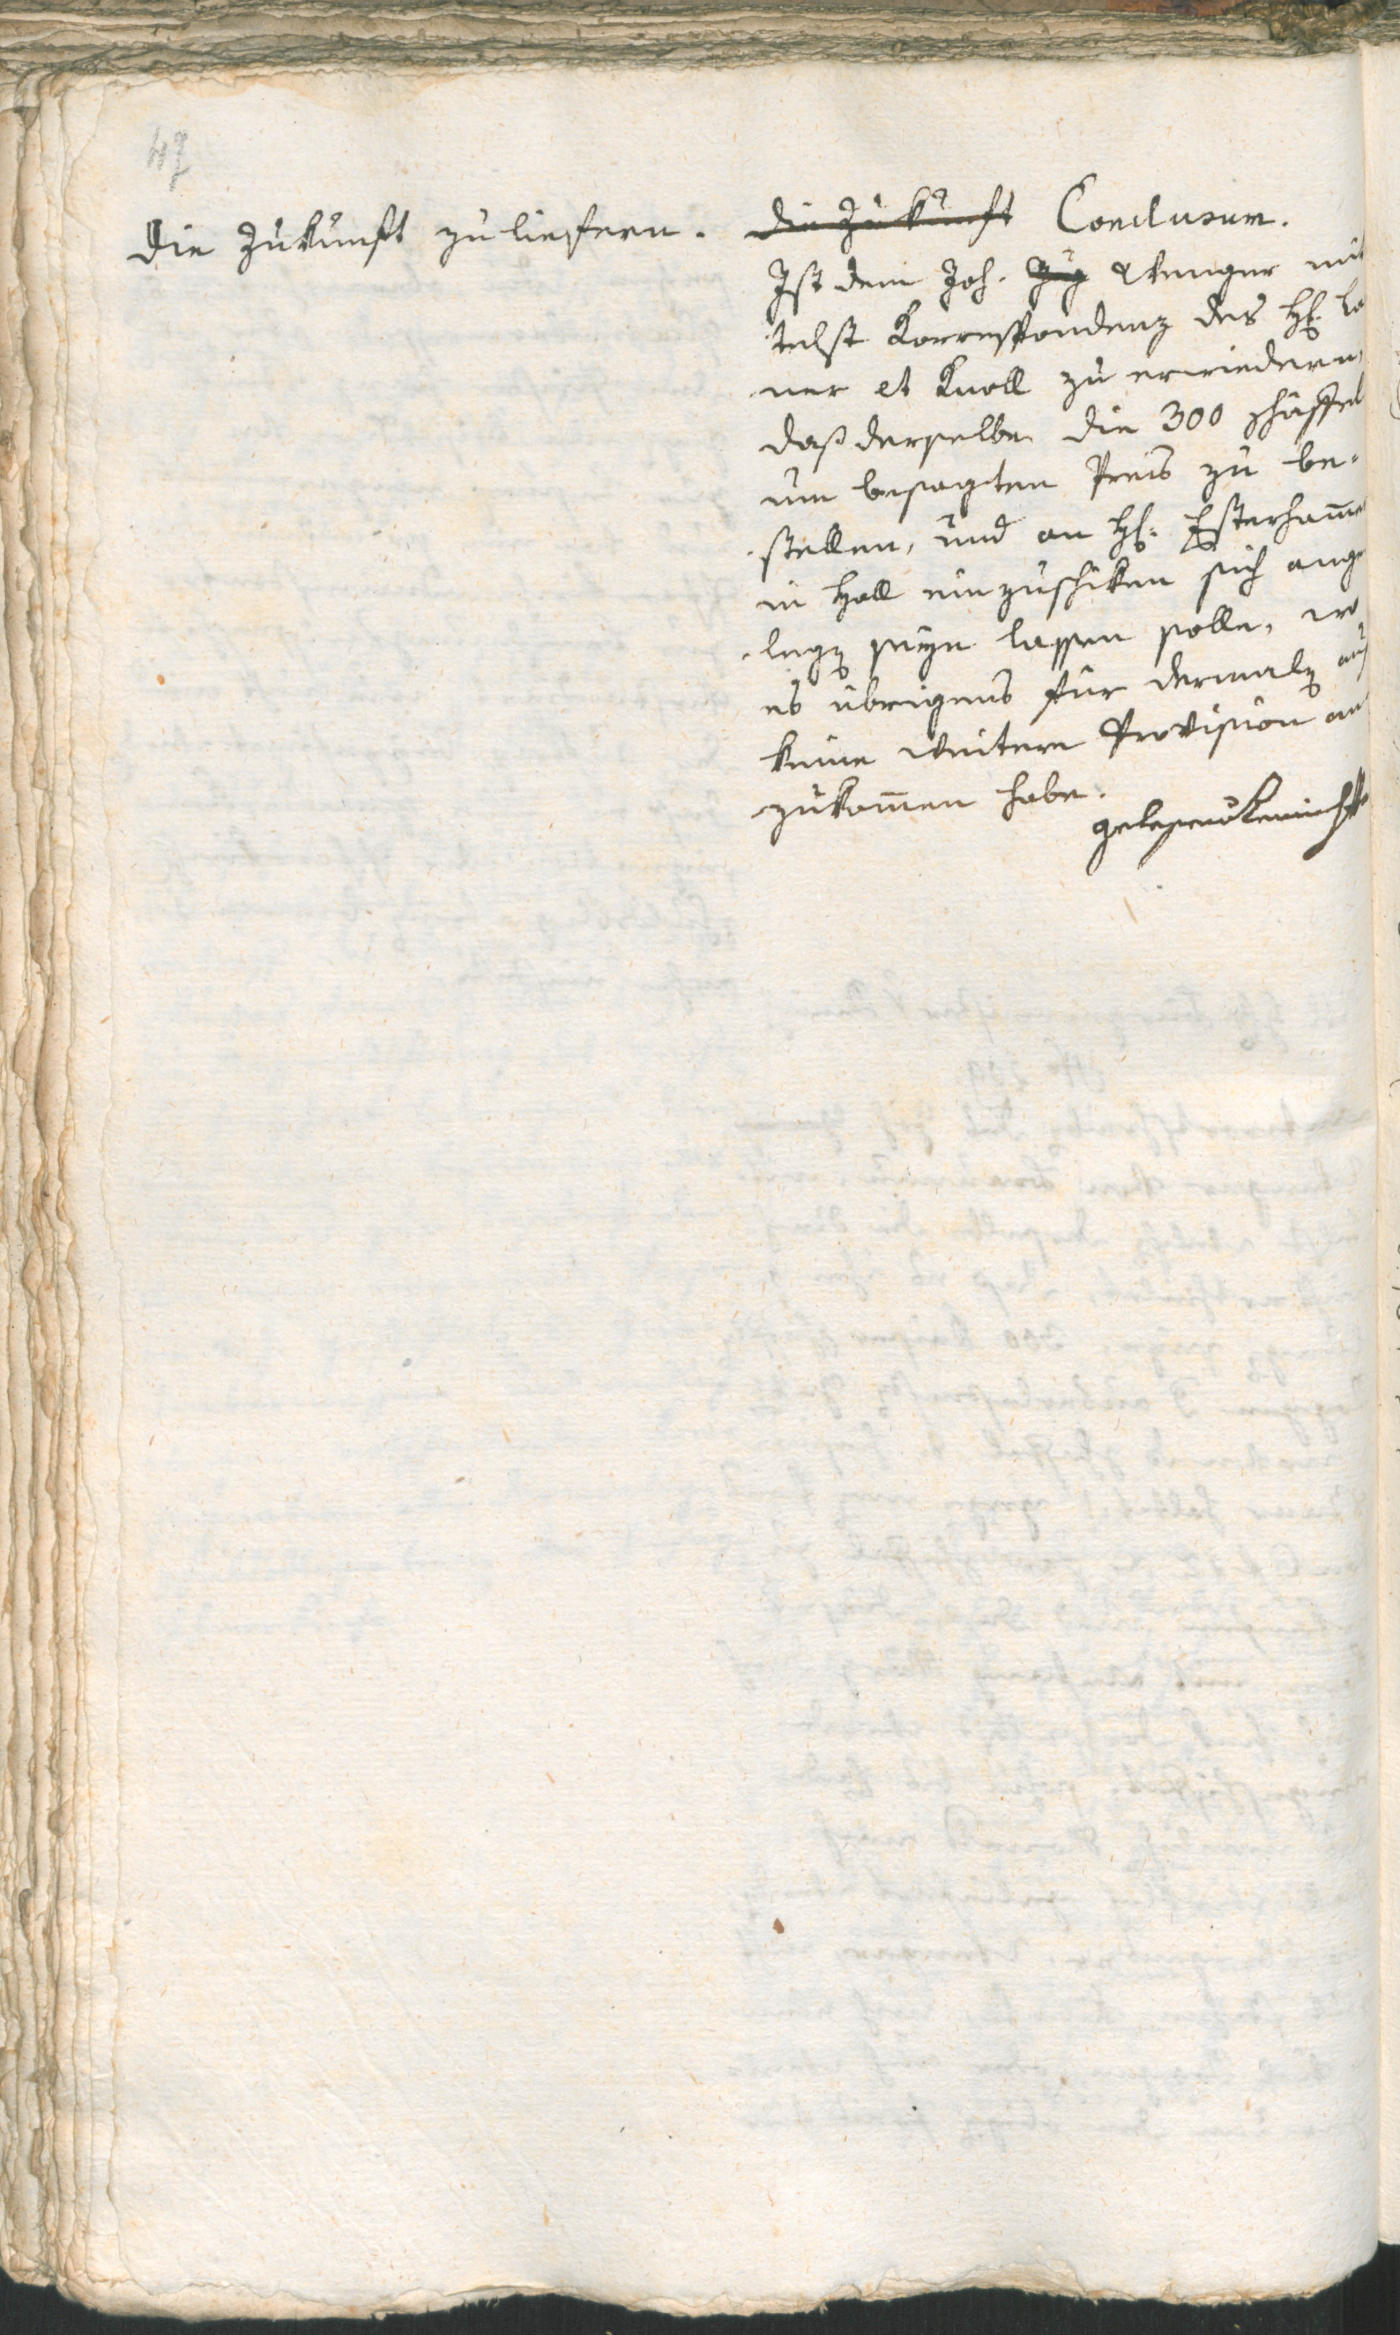 47
die Zukunft zu liefern.
die Zukunft Conclusum.
Ist dem Joh. Wenger mit
telst Korrespondenz des H:
ner et Knoll zu erwiedern,
daß derselbe die 300 Schäffel
um besagten Preis zu be-
stellen, und an H: Esterhamer
in Hall einzuschiken sich ange
legen seyn lassen solle, wo
es übrigens für dermalen
keine weitere Provision an
zukomen habe.